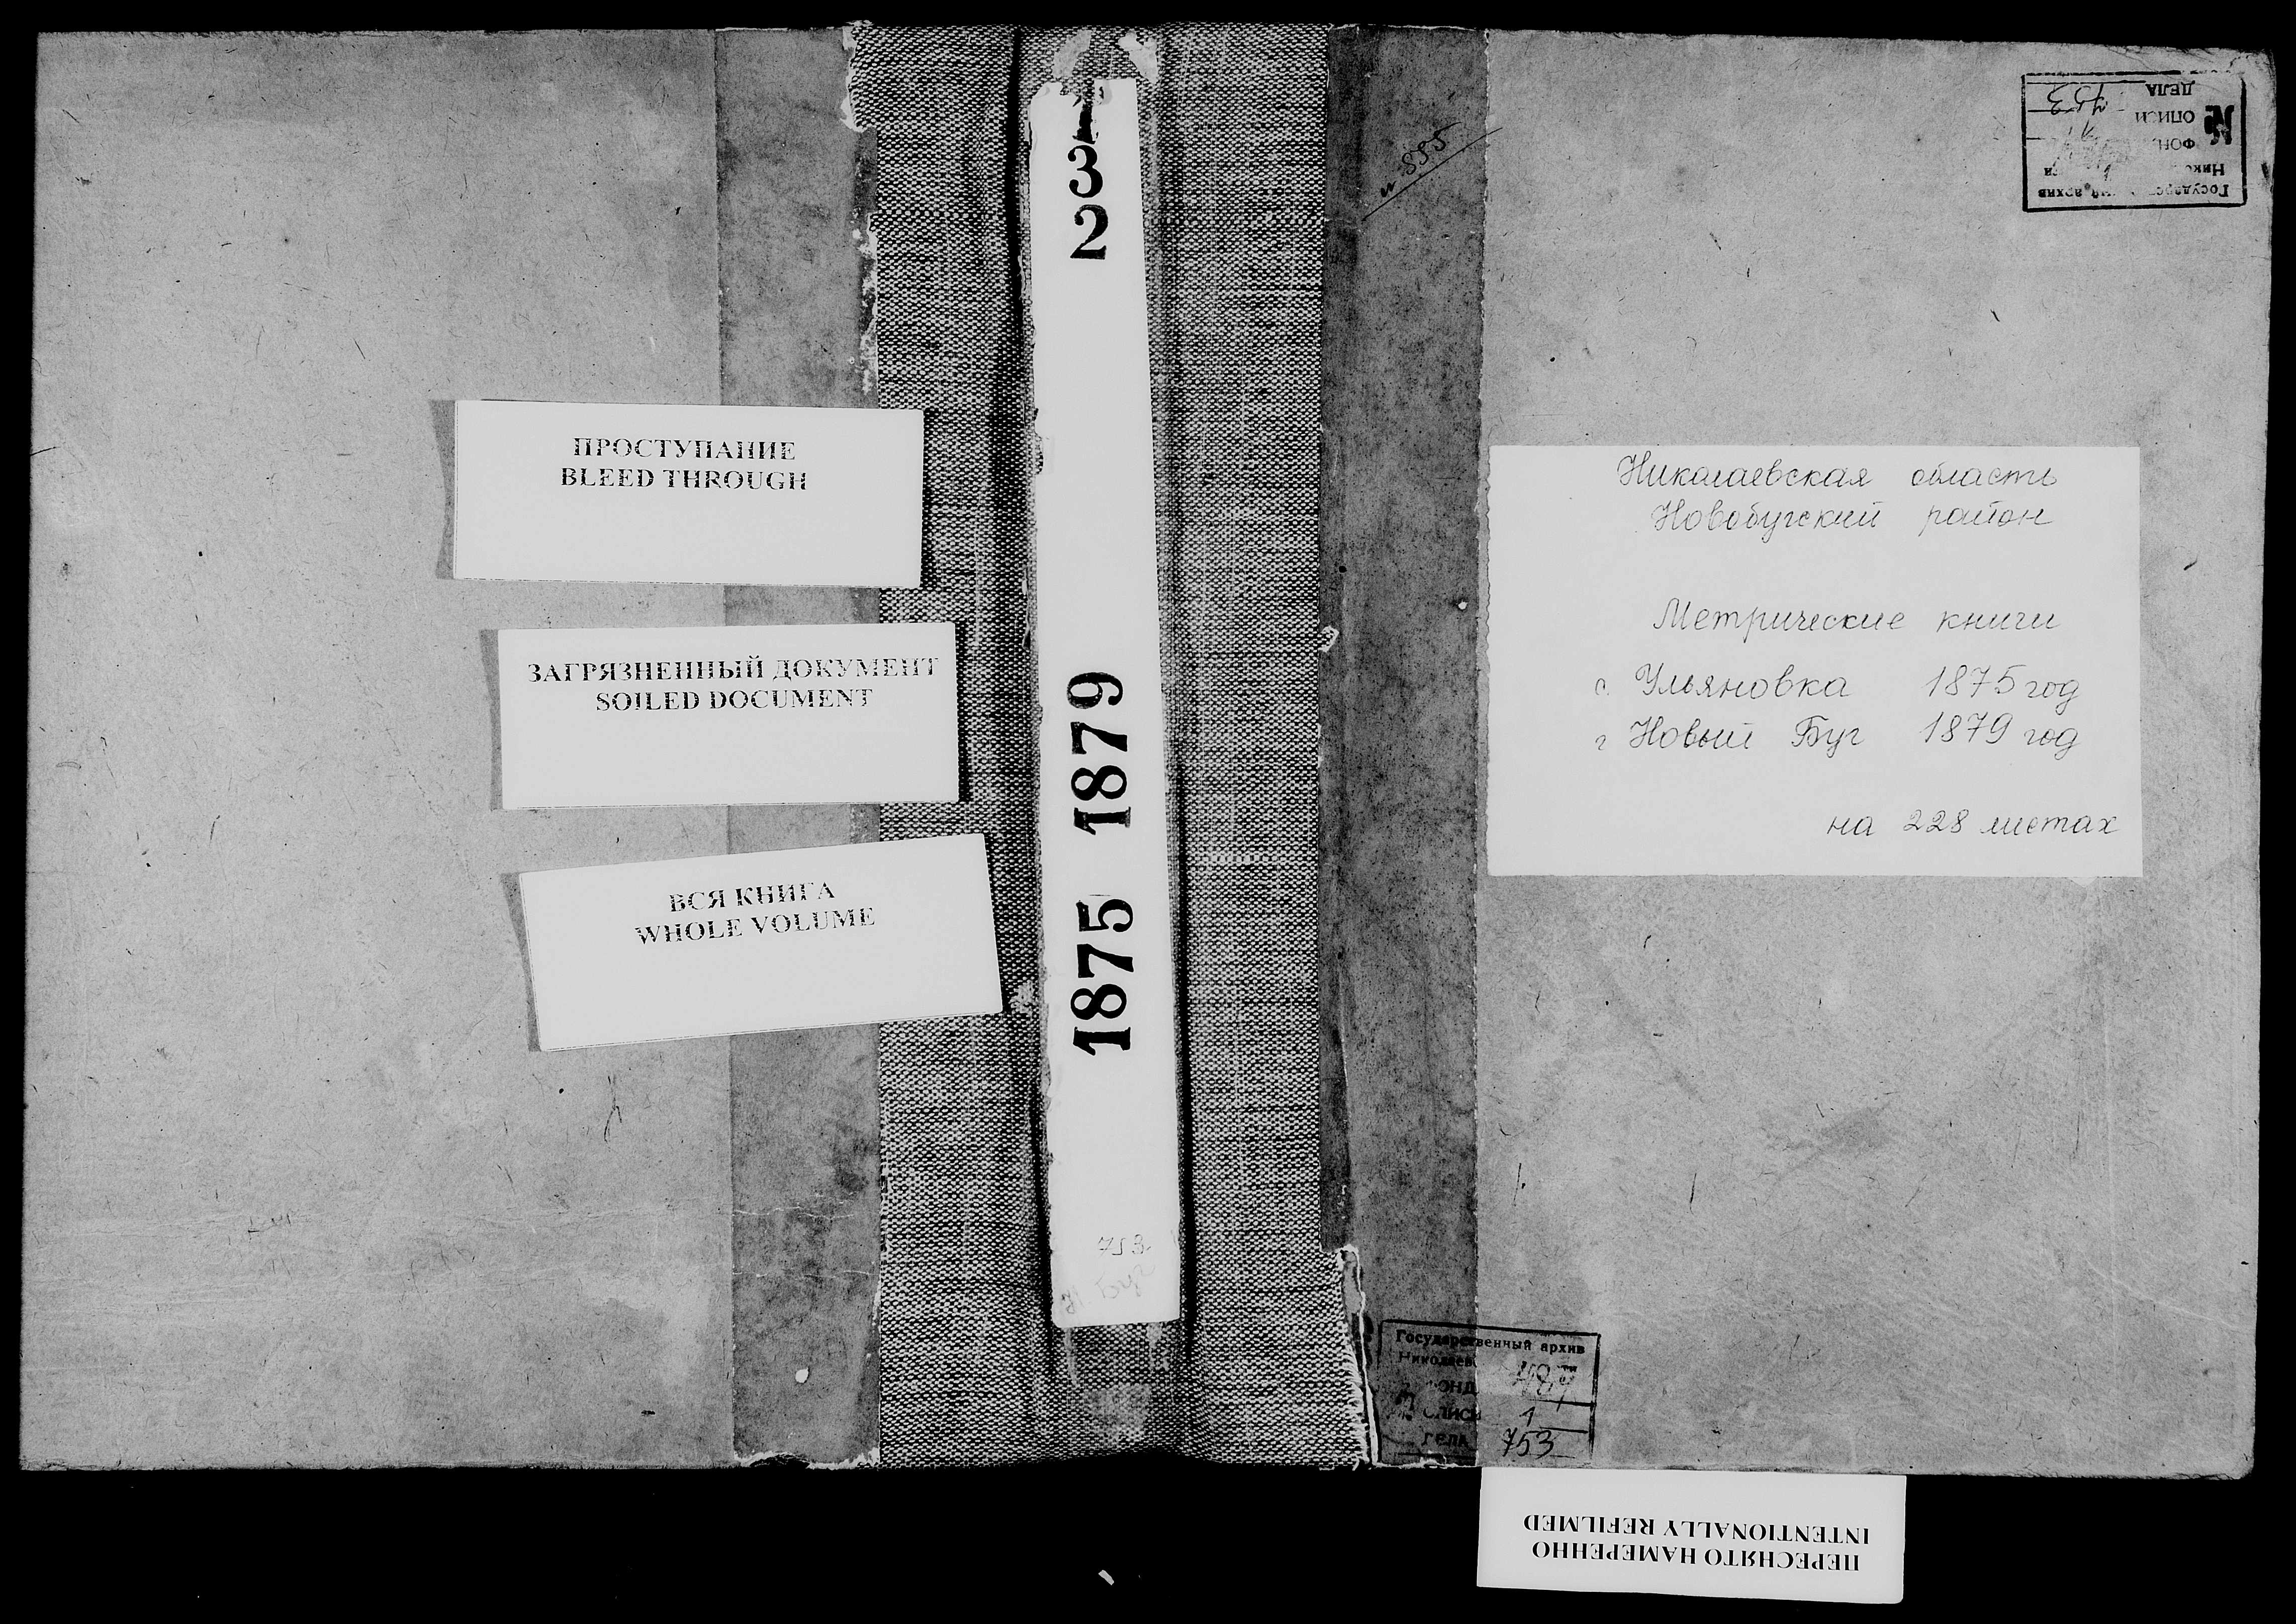 ПРОСТУПАНИЕ
BLEED THROUGH
ЗАГРЯЗНЕННЫЙ ДОКУМЕНТ
SOILED DOCUMENT
ВСЯ КНИГА
WHOLE VOLUME
1875 1879
753
Буг
и 885
Государственный архив
фонд
описи
дела 753
Николаевская область
Новобугский район
Метрические книги
с. Ульяновка 1875 год
г Новый Буг 1879 год
на 228 листах
Государственный архив
Николаев
фонд 484
описи 1
дела 753
ПЕРЕСНЯТО НАМЕРЕННО
INTENTIONALLY REFILMED